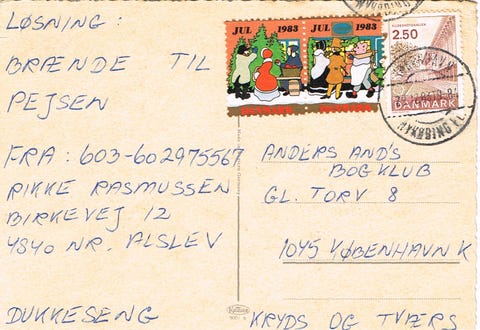 LØSNING :
BRÆNDE TIL
PEJSEN
FRA : 603-602975567
RIKKE RASMUSSEN
BIRKEVEJ 12
4840 NR. ALSLEV
DUKKESENG
JUL 1983
JUL 1983
2.50
DANMARK
ANDERS AND'S
BOGKLUB
GL. TORV 8
1045 KØBENHAVN K
KRYDS OG TVÆRS